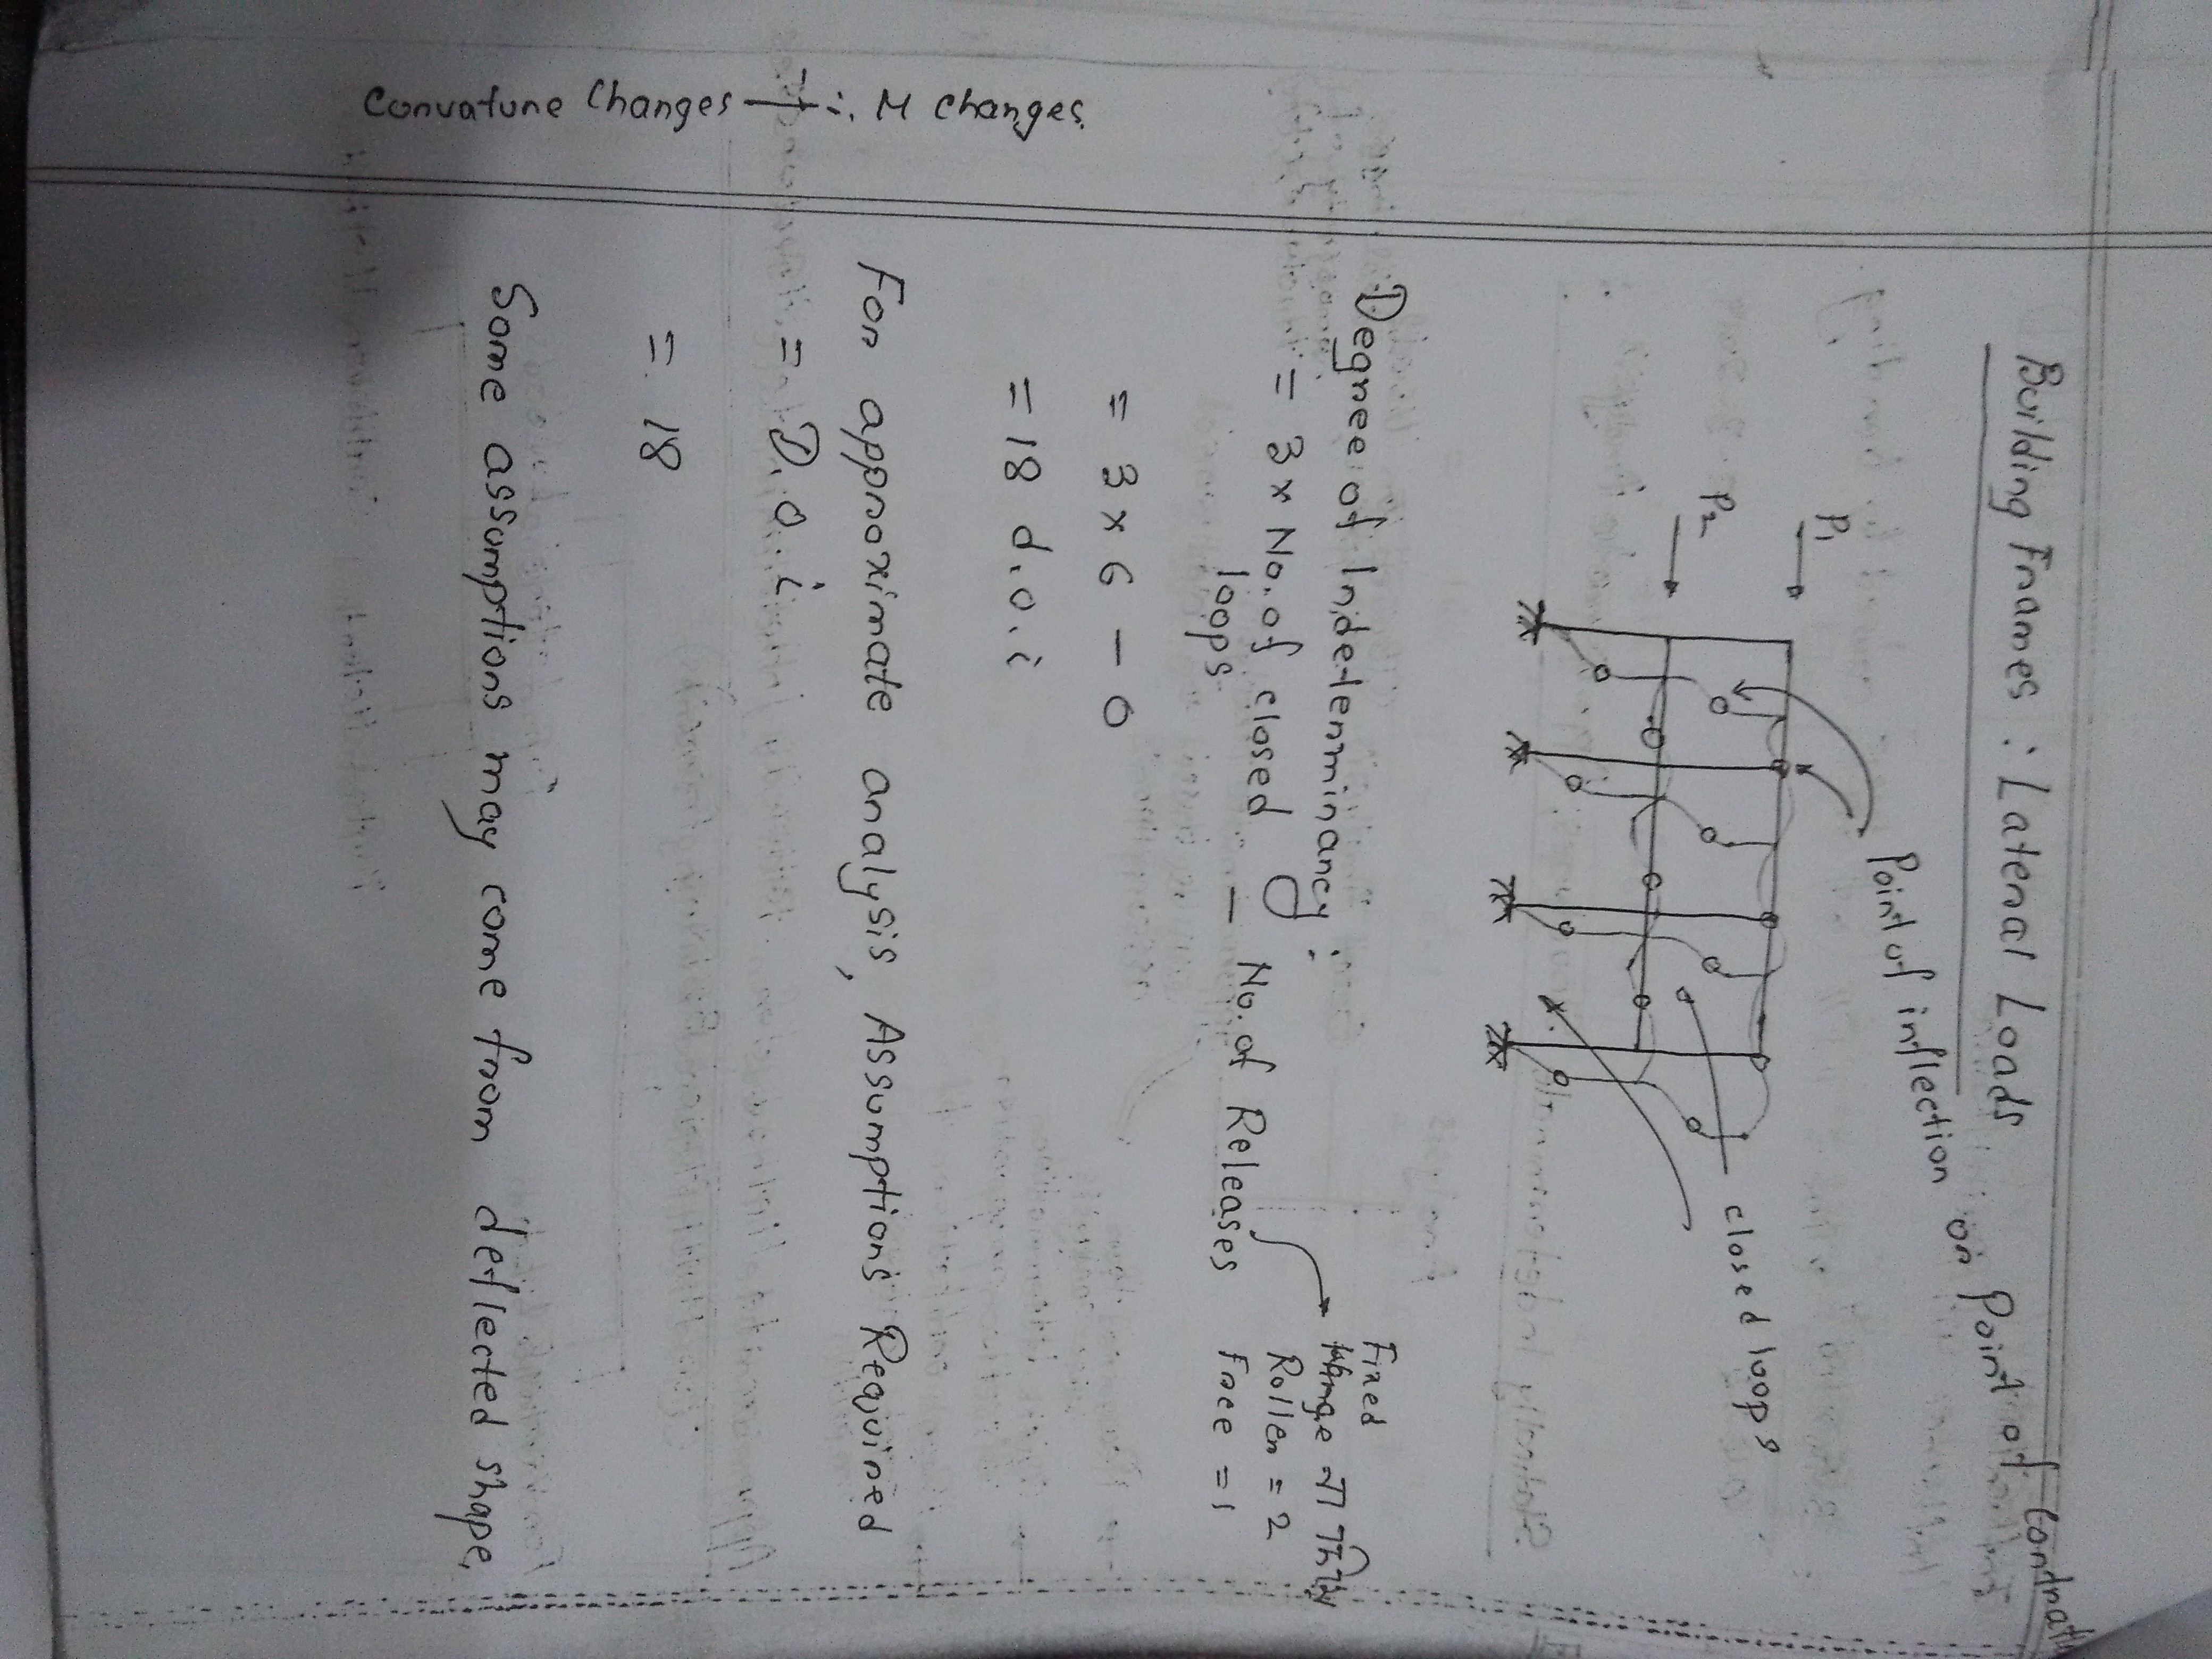 Building Frames : Lateral Loads
Point of inflection or Point of
P1
P2
closed loops
Degree of Indeterminancy :
= 3 x No. of closed loops - No. of Releases
Fixed
Roller = 2
Free = 1
= 3 x 6 - 0
= 18 d.o.i
For approximate analysis, Assumptions Required
= D.o.i
= 18
Some assumptions may come from deflected shape.
Curvature Changes → ∴ M changes.